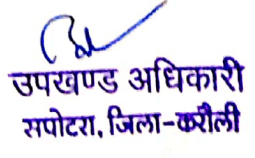 उपखण्ड अधिकारी
सपोटरा, जिला-करौली